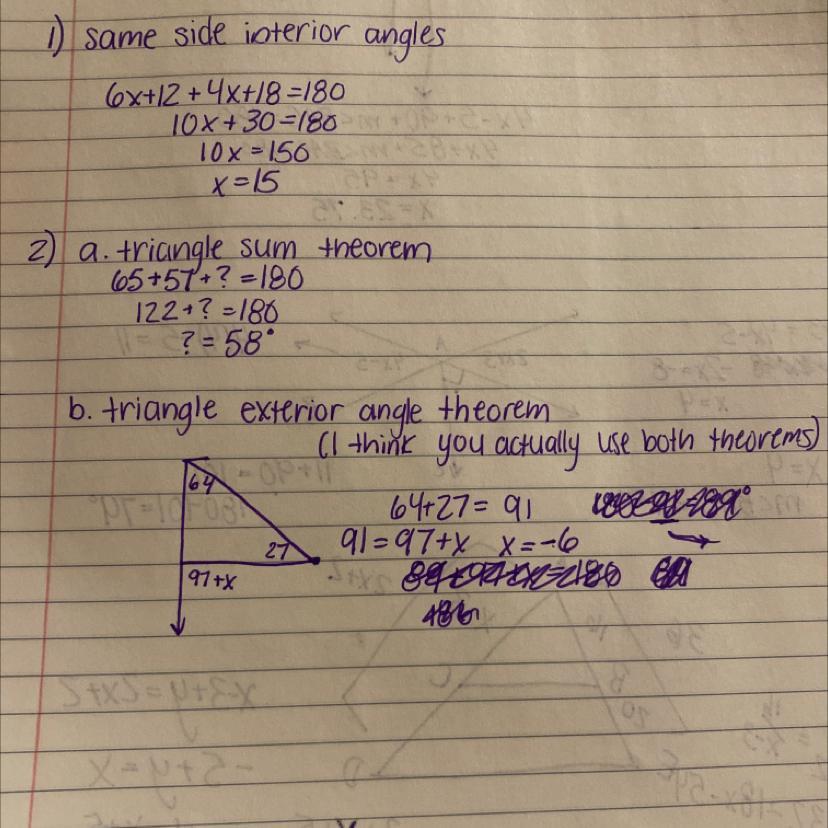 1) same side interior angles
6x+12+4x+18=180
10x+30=180
10x=150
x=15
2) a. triangle sum theorem
65+57+?=180
122+?=180
?=58°
b. triangle exterior angle theorem
(I think you actually use both theorems)
64
64+27=91
27
91=97+x x=-6
97+x